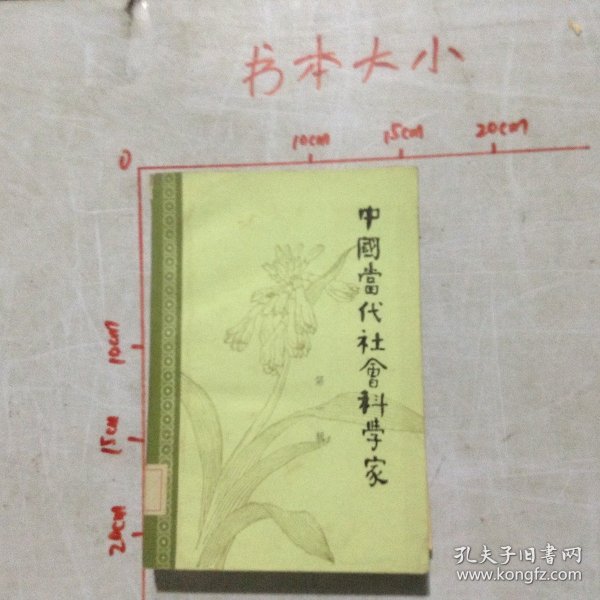 书本大小
0
10cm
15cm
20cm
10cm
15cm
20cm
中國當代社會科學家
第
辑
孔夫子旧书网
www.kongfz.com